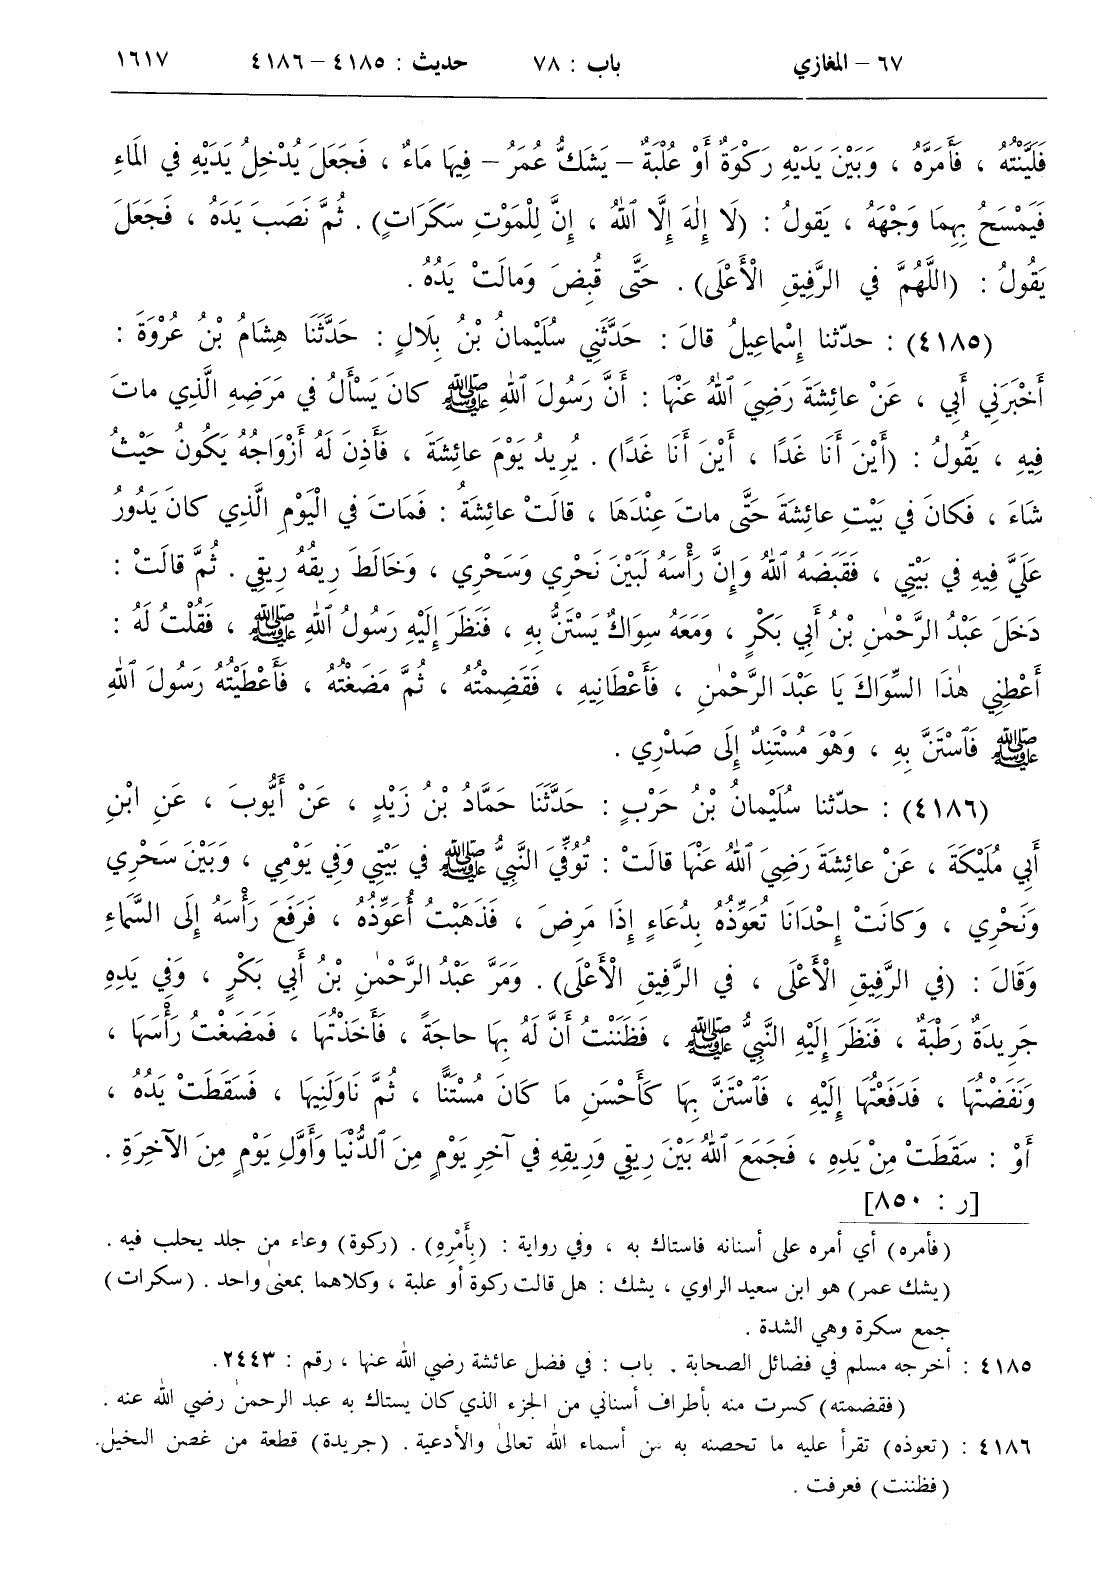 ٦٧ – المغازي باب : ٧٨ حديث : ٤١٨٥ – ٤١٨٦ ١٦١٧
فَلَيَّنْتُهُ ، فَأَمَرَّهُ ، وَبَيْنَ يَدَيْهِ رَكْوَةٌ أَوْ عُلْبَةٌ – يَشَكُّ عُمَرُ – فِيهَا مَاءٌ ، فَجَعَلَ يُدْخِلُ يَدَيْهِ فِي المَاءِ
فَيَمْسَحُ بِهِمَا وَجْهَهُ ، يَقُولُ : (لَا إِلٰهَ إِلَّا ٱللهُ ، إِنَّ لِلْمَوْتِ سَكَرَاتٍ) . ثُمَّ نَصَبَ يَدَهُ ، فَجَعَلَ
يَقُولُ : (اللَّهُمَّ فِي الرَّفِيقِ الْأَعْلَى) . حَتَّى قُبِضَ وَمالَتْ يَدُهُ .
(٤١٨٥) : حدّثنا إِسْماعِيلُ قالَ : حَدَّثَنِي سُلَيْمانُ بْنُ بِلَالٍ : حَدَّثَنَا هِشَامُ بْنُ عُرْوَةَ :
أَخْبَرَنِي أَبِي ، عَنْ عائِشَةَ رَضِيَ ٱللهُ عَنْهَا : أَنَّ رَسُولَ ٱللهِ ﷺ كانَ يَسْأَلُ فِي مَرَضِهِ الَّذِي ماتَ
فِيهِ ، يَقُولُ : (أَيْنَ أَنَا غَدًا ، أَيْنَ أَنَا غَدًا) . يُرِيدُ يَوْمَ عائِشَةَ ، فَأَذِنَ لَهُ أَزْوَاجُهُ يَكُونُ حَيْثُ
شَاءَ ، فَكانَ فِي بَيْتِ عائِشَةَ حَتَّى ماتَ عِنْدَهَا ، قالَتْ عائِشَةُ : فَمَاتَ فِي الْيَوْمِ الَّذِي كانَ يَدُورُ
عَلَيَّ فِيهِ فِي بَيْتِي ، فَقَبَضَهُ ٱللهُ وَإِنَّ رَأْسَهُ لَبَيْنَ نَحْرِي وَسَحْرِي ، وَخالَطَ رِيقُهُ رِيقِي . ثُمَّ قالَتْ :
دَخَلَ عَبْدُ الرَّحْمٰنِ بْنُ أَبِي بَكْرٍ ، وَمَعَهُ سِوَاكٌ يَسْتَنُّ بِهِ ، فَنَظَرَ إِلَيْهِ رَسُولُ ٱللهِ ﷺ ، فَقُلْتُ لَهُ :
أَعْطِنِي هٰذَا السِّوَاكَ يَا عَبْدَ الرَّحْمٰنِ ، فَأَعْطَانِيهِ ، فَقَضِمْتُهُ ، ثُمَّ مَضَغْتُهُ ، فَأَعْطَيْتُهُ رَسُولَ ٱللهِ
ﷺ فَاسْتَنَّ بِهِ ، وَهْوَ مُسْتَنِدٌ إِلَى صَدْرِي .
(٤١٨٦) : حدّثنا سُلَيْمانُ بْنُ حَرْبٍ : حَدَّثَنَا حَمَّادُ بْنُ زَيْدٍ ، عَنْ أَيُّوبَ ، عَنِ ابْنِ
أَبِي مُلَيْكَةَ ، عَنْ عائِشَةَ رَضِيَ ٱللهُ عَنْهَا قالَتْ : تُوُفِّيَ النَّبِيُّ ﷺ فِي بَيْتِي وَفِي يَوْمِي ، وَبَيْنَ سَحْرِي
وَنَحْرِي ، وَكانَتْ إِحْدَانَا تُعَوِّذُهُ بِدُعَاءٍ إِذَا مَرِضَ ، فَذَهَبْتُ أُعَوِّذُهُ ، فَرَفَعَ رَأْسَهُ إِلَى السَّمَاءِ
وَقالَ : (فِي الرَّفِيقِ الْأَعْلَى ، فِي الرَّفِيقِ الْأَعْلَى) . وَمَرَّ عَبْدُ الرَّحْمٰنِ بْنُ أَبِي بَكْرٍ ، وَفِي يَدِهِ
جَرِيدَةٌ رَطْبَةٌ ، فَنَظَرَ إِلَيْهِ النَّبِيُّ ﷺ ، فَظَنَنْتُ أَنَّ لَهُ بِهَا حاجَةً ، فَأَخَذْتُهَا ، فَمَضَغْتُ رَأْسَهَا ،
وَنَفَضْتُهَا ، فَدَفَعْتُهَا إِلَيْهِ ، فَاسْتَنَّ بِهَا كَأَحْسَنِ ما كَانَ مُسْتَنًّا ، ثُمَّ نَاوَلَنِيهَا ، فَسَقَطَتْ يَدُهُ ،
أَوْ : سَقَطَتْ مِنْ يَدِهِ ، فَجَمَعَ ٱللهُ بَيْنَ رِيقِي وَرِيقِهِ فِي آخِرِ يَوْمٍ مِنَ ٱلدُّنْيَا وَأَوَّلِ يَوْمٍ مِنَ الآخِرَةِ .
[ر : ٨٥٠]
(فأمره) أي أمره على أسنانه فاستاك به ، وفي رواية : (بِأَمْرِهِ) . (ركوة) وعاء من جلد يحلب فيه .
(يشك عمر) هو ابن سعيد الراوي ، يشك : هل قالت ركوة أو علبة ، وكلاهما بمعنىً واحد . (سكرات)
جمع سكرة وهي الشدة .
٤١٨٥ : أخرجه مسلم في فضائل الصحابة . باب : في فضل عائشة رضي الله عنها ، رقم : ٢٤٤٣ .
(فقضمته) كسرت منه بأطراف أسناني من الجزء الذي كان يستاك به عبد الرحمنٰ رضي الله عنه .
٤١٨٦ : (تعوذه) تقرأ عليه ما تحصنه به من أسماء الله تعالىٰ والأدعية . (جريدة) قطعة من غصن النخيل .
(فظننت) فعرفت .